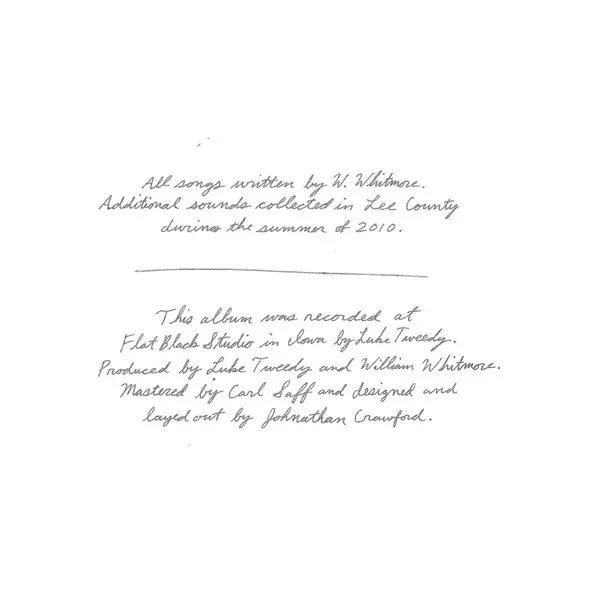 All songs written by W. Whitmore.
Additional sounds collected in Lee County
during the summer of 2010.
This album was recorded at
Flat Black Studio in Iowa by Luke Tweedy.
Produced by Luke Tweedy and William Whitmore.
Mastered by Carl Saff and designed and
layed out by Johnathan Crawford.